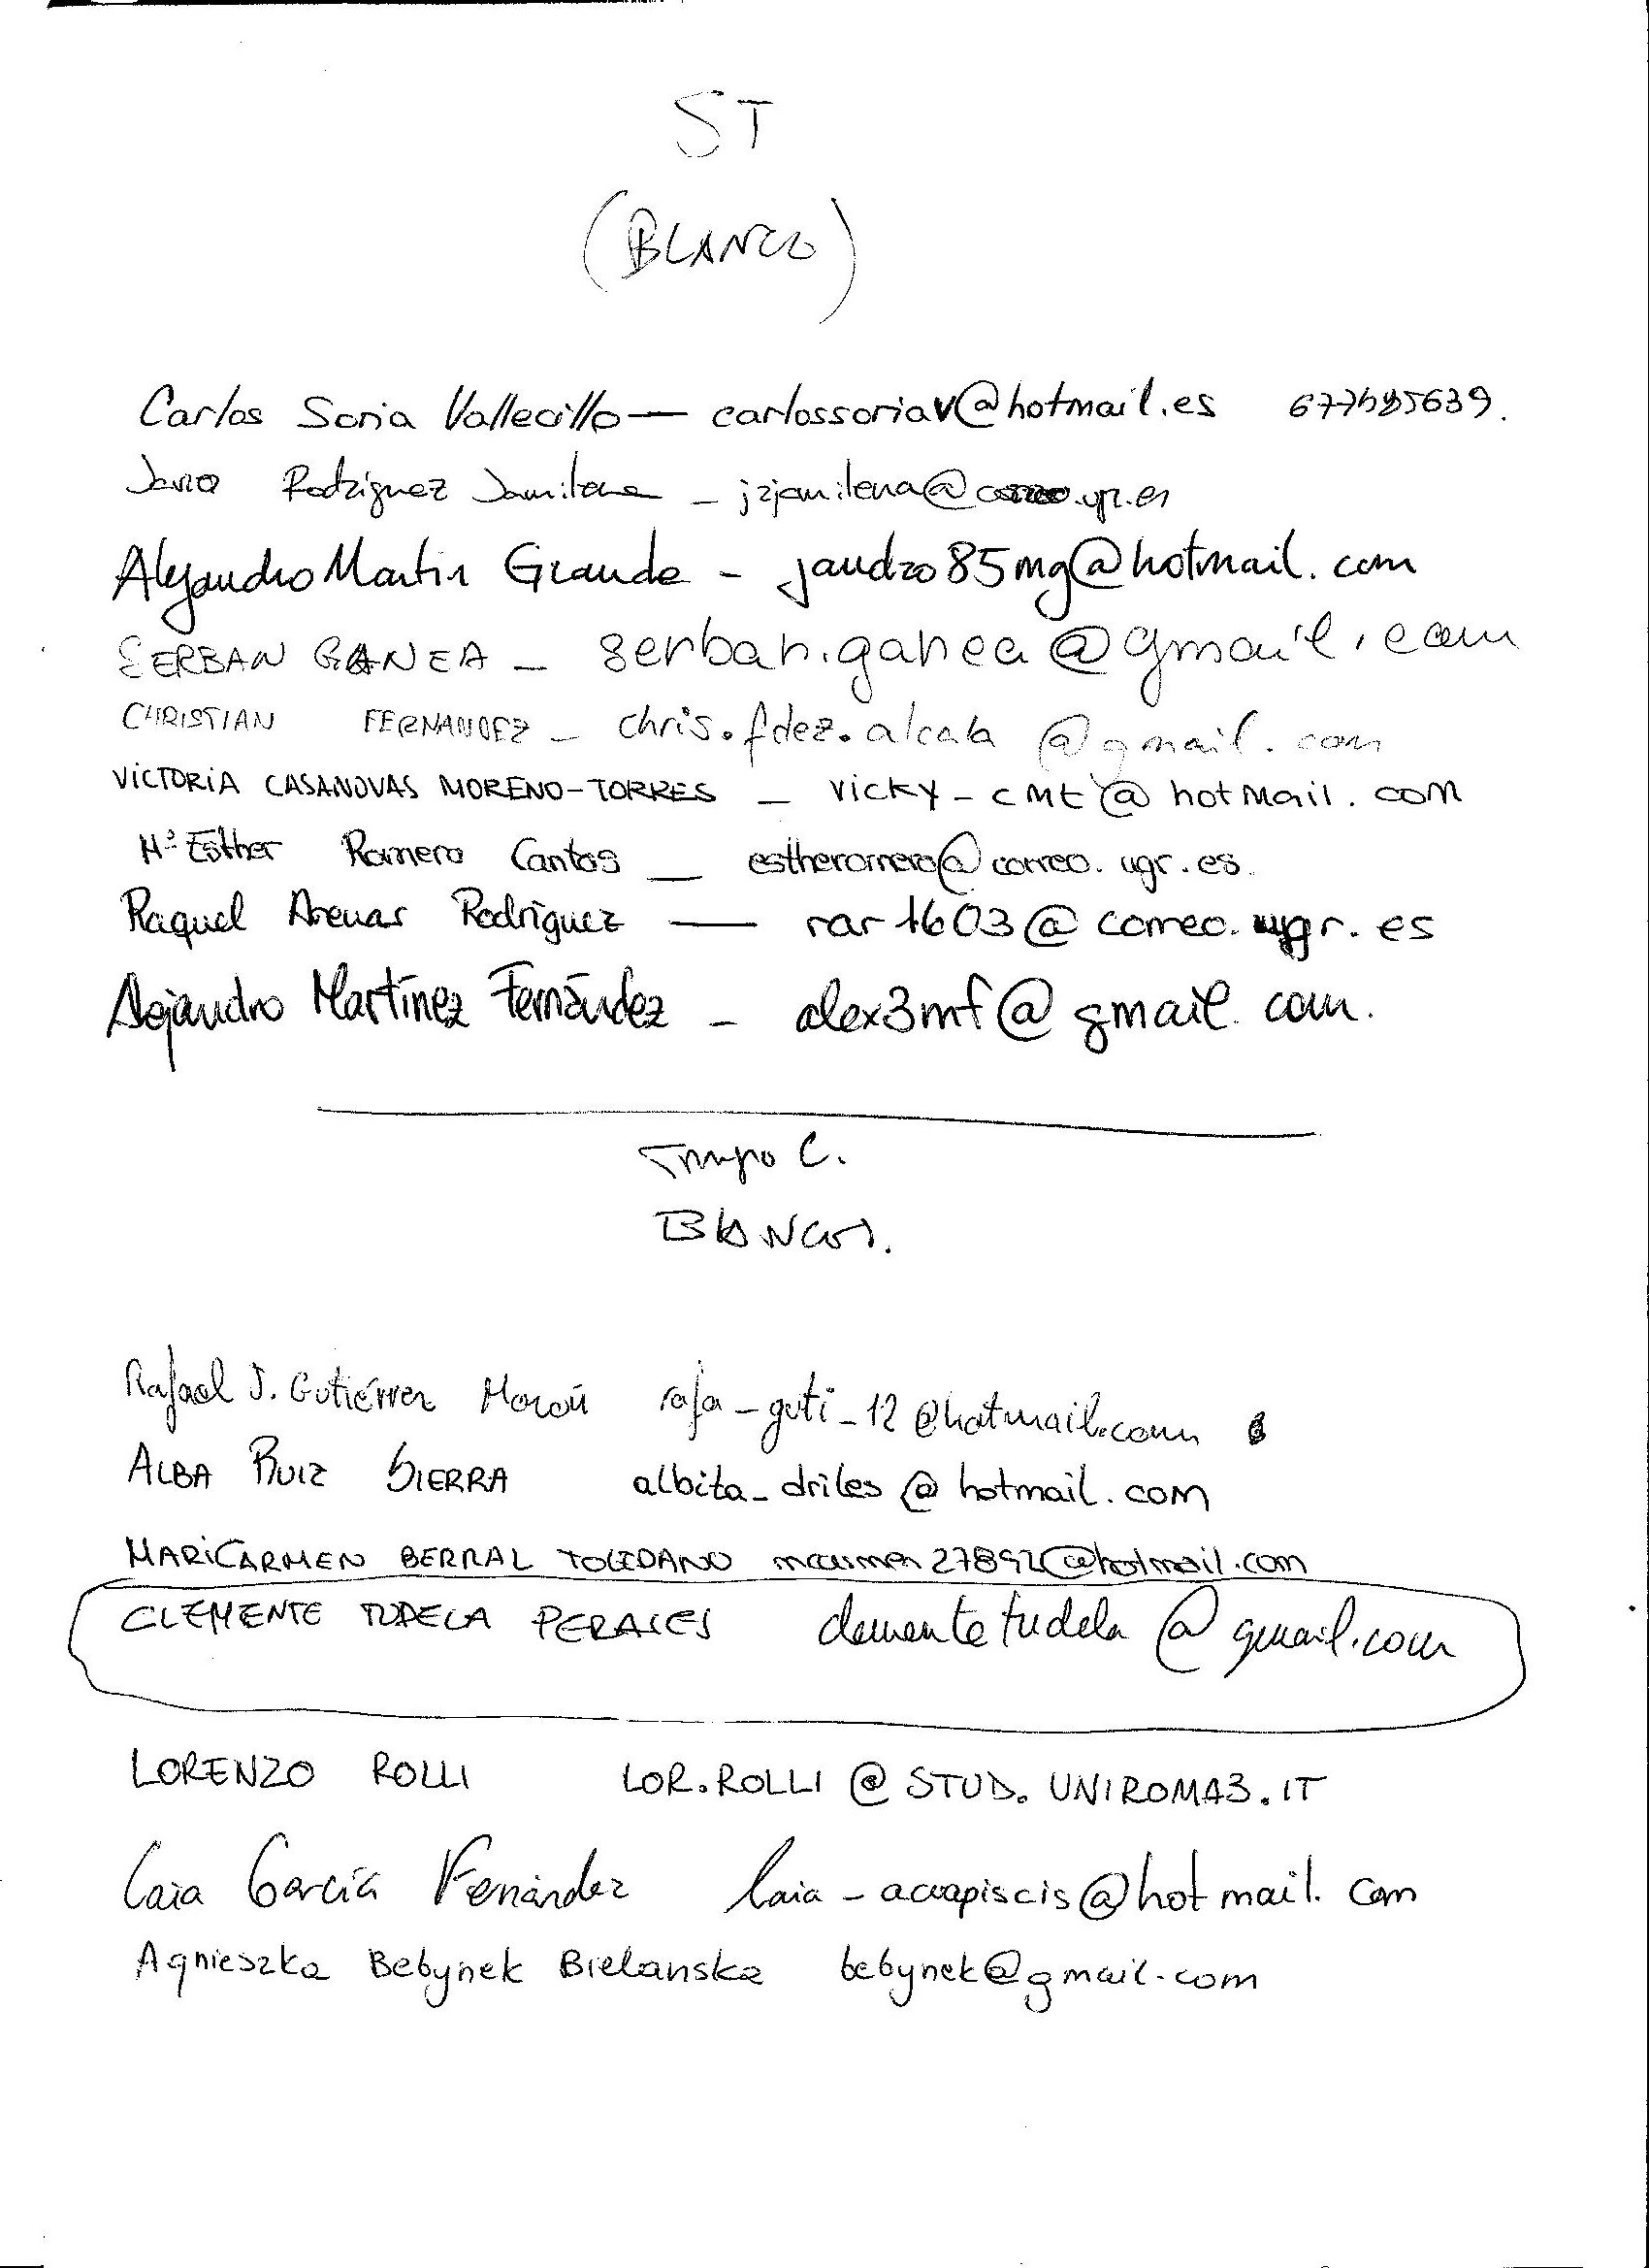 ST
(BLANCO)
Carlos Soria Vallecillo — carlossoriav@hotmail.es
Rodríguez Jamilena - jrjamilena@correo.ugr.es
Alejandro Martin Grande - jandro85mg@hotmail.com
SERBAN GANEA - serban.ganea@gmail.com
CHRISTIAN FERNANDEZ - chris.fdez.alcala @gmail.com
VICTORIA CASANOVAS MORENO-TORRES - vicky-cmt@hotmail.com
Mª Esther Romero Cantos — estheromero@correo.ugr.es.
Raquel Arenas Rodríguez — rar1603@correo.ugr.es
Alejandro Martínez Fernández - alex3mf@gmail.com.
C.
Blancos.
Rafael J. Gutiérrez rafa_guti_12@hotmail.com
ALBA RUIZ SIERRA albita_driles@hotmail.com
MARICARMEN BERRAL TOLEDANO
CLEMENTE TUDELA PERALES clementetudela@gmail.com
LORENZO ROLLI LOR.ROLLI@STUD.UNIROMA3.IT
Laia García Fernández laia-acuapiscis@hotmail.com
Agnieszka Bebynek Bielanska bebynek@gmail.com